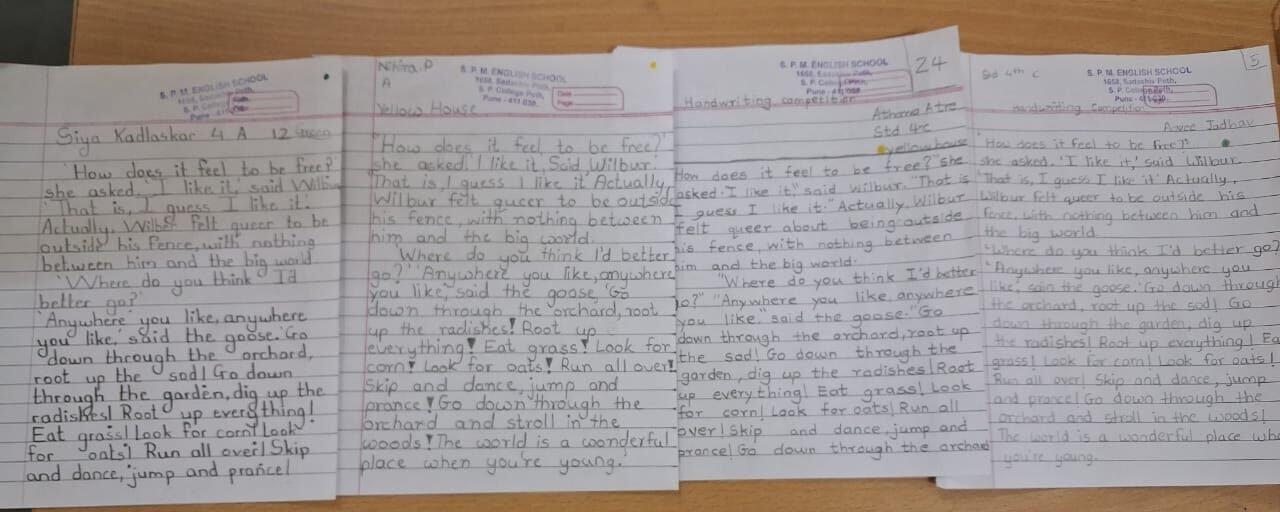 S. P. M. ENGLISH SCHOOL
1658, Sadashiv Peth,
S. P. College Path,
Pune - 411 030.
Siya Kadlaskar 4 A 12 Green
'How does it feel to be free?'
she asked, 'I like it,' said Wilbu
'That is, I guess I like it.'
Actually, Wilber felt queer to be
outside his fence, with nothing
between him and the big world
'Where do you think I'd
better go?'
'Anywhere you like, anywhere
you like, said the goose. 'Go
down through the orchard,
root up the sod! Go down
through the garden, dig up the
radishes! Root up everything!
Eat grass! Look for corn! Look
for oats! Run all over! Skip
and dance, jump and prance!
Nihira. P
A
S. P. M. ENGLISH SCHOOL
1658, Sadashiv Peth,
S. P. College Path,
Pune - 411 030.
Date
Page
Yellow House
'How does it feel to be free?'
she asked. 'I like it, Said, Wilbur.'
That is, I guess I like it' Actually,
Wilbur felt queer to be outside
his fence, with nothing between
him and the big world.
'Where do you think I'd better
go?' 'Anywhere you like, anywhere
you like,' said the goose, 'Go
down through the orchard, root
up the radishes! Root up
everything! Eat grass! Look for
corn! Look for oats! Run all over!
Skip and dance, jump and
prance! Go down through the
orchard and stroll in the
woods! The world is a wonderful
place when you're young.'
24
S. P. M. ENGLISH SCHOOL
1658, Sadashiv Peth,
S. P. College Path,
Pune - 411 030.
Handwriting competition
Atharva Atre
Std 4-c
yellow house
How does it feel to be free?" she
asked. I like it," said wilbur. "That is
I guess I like it." Actually, Wilbur
felt queer about being outside
his fence, with nothing between
him and the big world.
"Where do you think I'd better
go?" "Anywhere you like, anywhere
you like." said the goose. "Go
down through the orchard, root up
the sod! Go down through the
garden, dig up the radishes! Root
up everything! Eat grass! Look
for corn! Look for oats! Run all
over! Skip and dance, jump and
prance! Go down through the orchad
5
Std 4th C
S. P. M. ENGLISH SCHOOL
1658, Sadashiv Peth,
S. P. College Path,
Pune - 411 030.
Handwriting Competition
Jadhav
'How does it feel to be free?'
she asked. 'I like it,' said Wilbur.
'That is, I guess I like it.' Actually,
Wilbur felt queer to be outside his
fence, with nothing between him and
the big world.
'Where do you think I'd better go?
'Anywhere you like, anywhere you
like,' sain the goose. 'Go down through
the orchard, root up the sod! Go
down through the garden, dig up
the radishes! Root up everything! Ea
grass! Look for corn! Look for oats!
Run all over! Skip and dance, jump
and prance! Go down through the
orchard and stroll in the woods!
The world is a wonderful place whe
you're young.